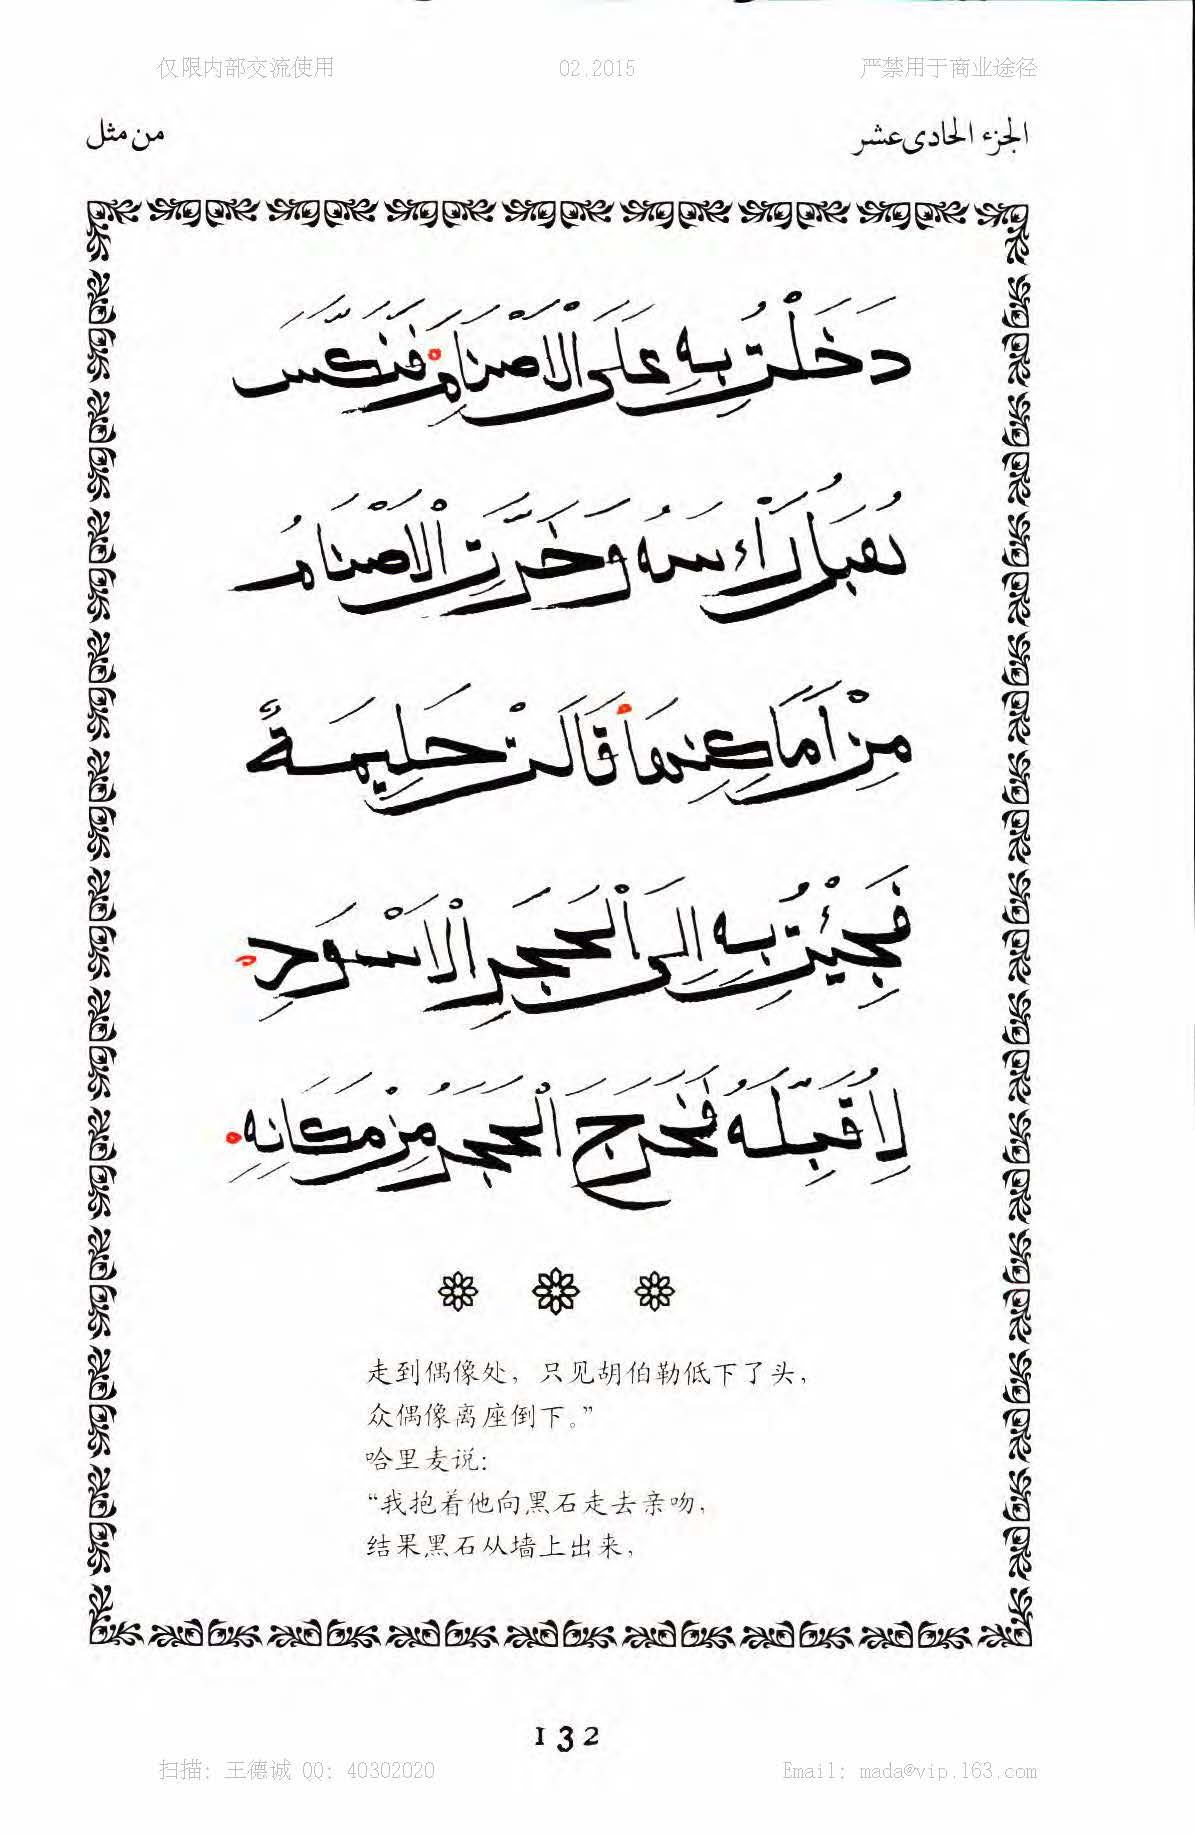 仅限内部交流使用 02.2015 严禁用于商业途径
الجزء الحادى عشر من مثل
دَخَلْتُ بِهِ عَلَى الْاَصْنَامِ فَنَكَّسَ
هُبَارَاْءسَهُ وَخَرَّتِ الْاَصْنَامُ
مِنْ اَمَاكِنِهَا قَالَتْ حَلِيمَةٌ
فَجِئْتُ بِهِ اِلَى الْحَجَرِ الْاَسْوَدِ
لِاُقَبِّلَهُ فَخَرَجَ الْحَجَرُ مِنْ مَكَانِهِ
走到偶像处，只见胡伯勒低下了头，
众偶像离座倒下。”
哈里麦说：
“我抱着他向黑石走去亲吻，
结果黑石从墙上出来，
132
扫描：王德诚 QQ：40302020 Email：mada@vip.163.com